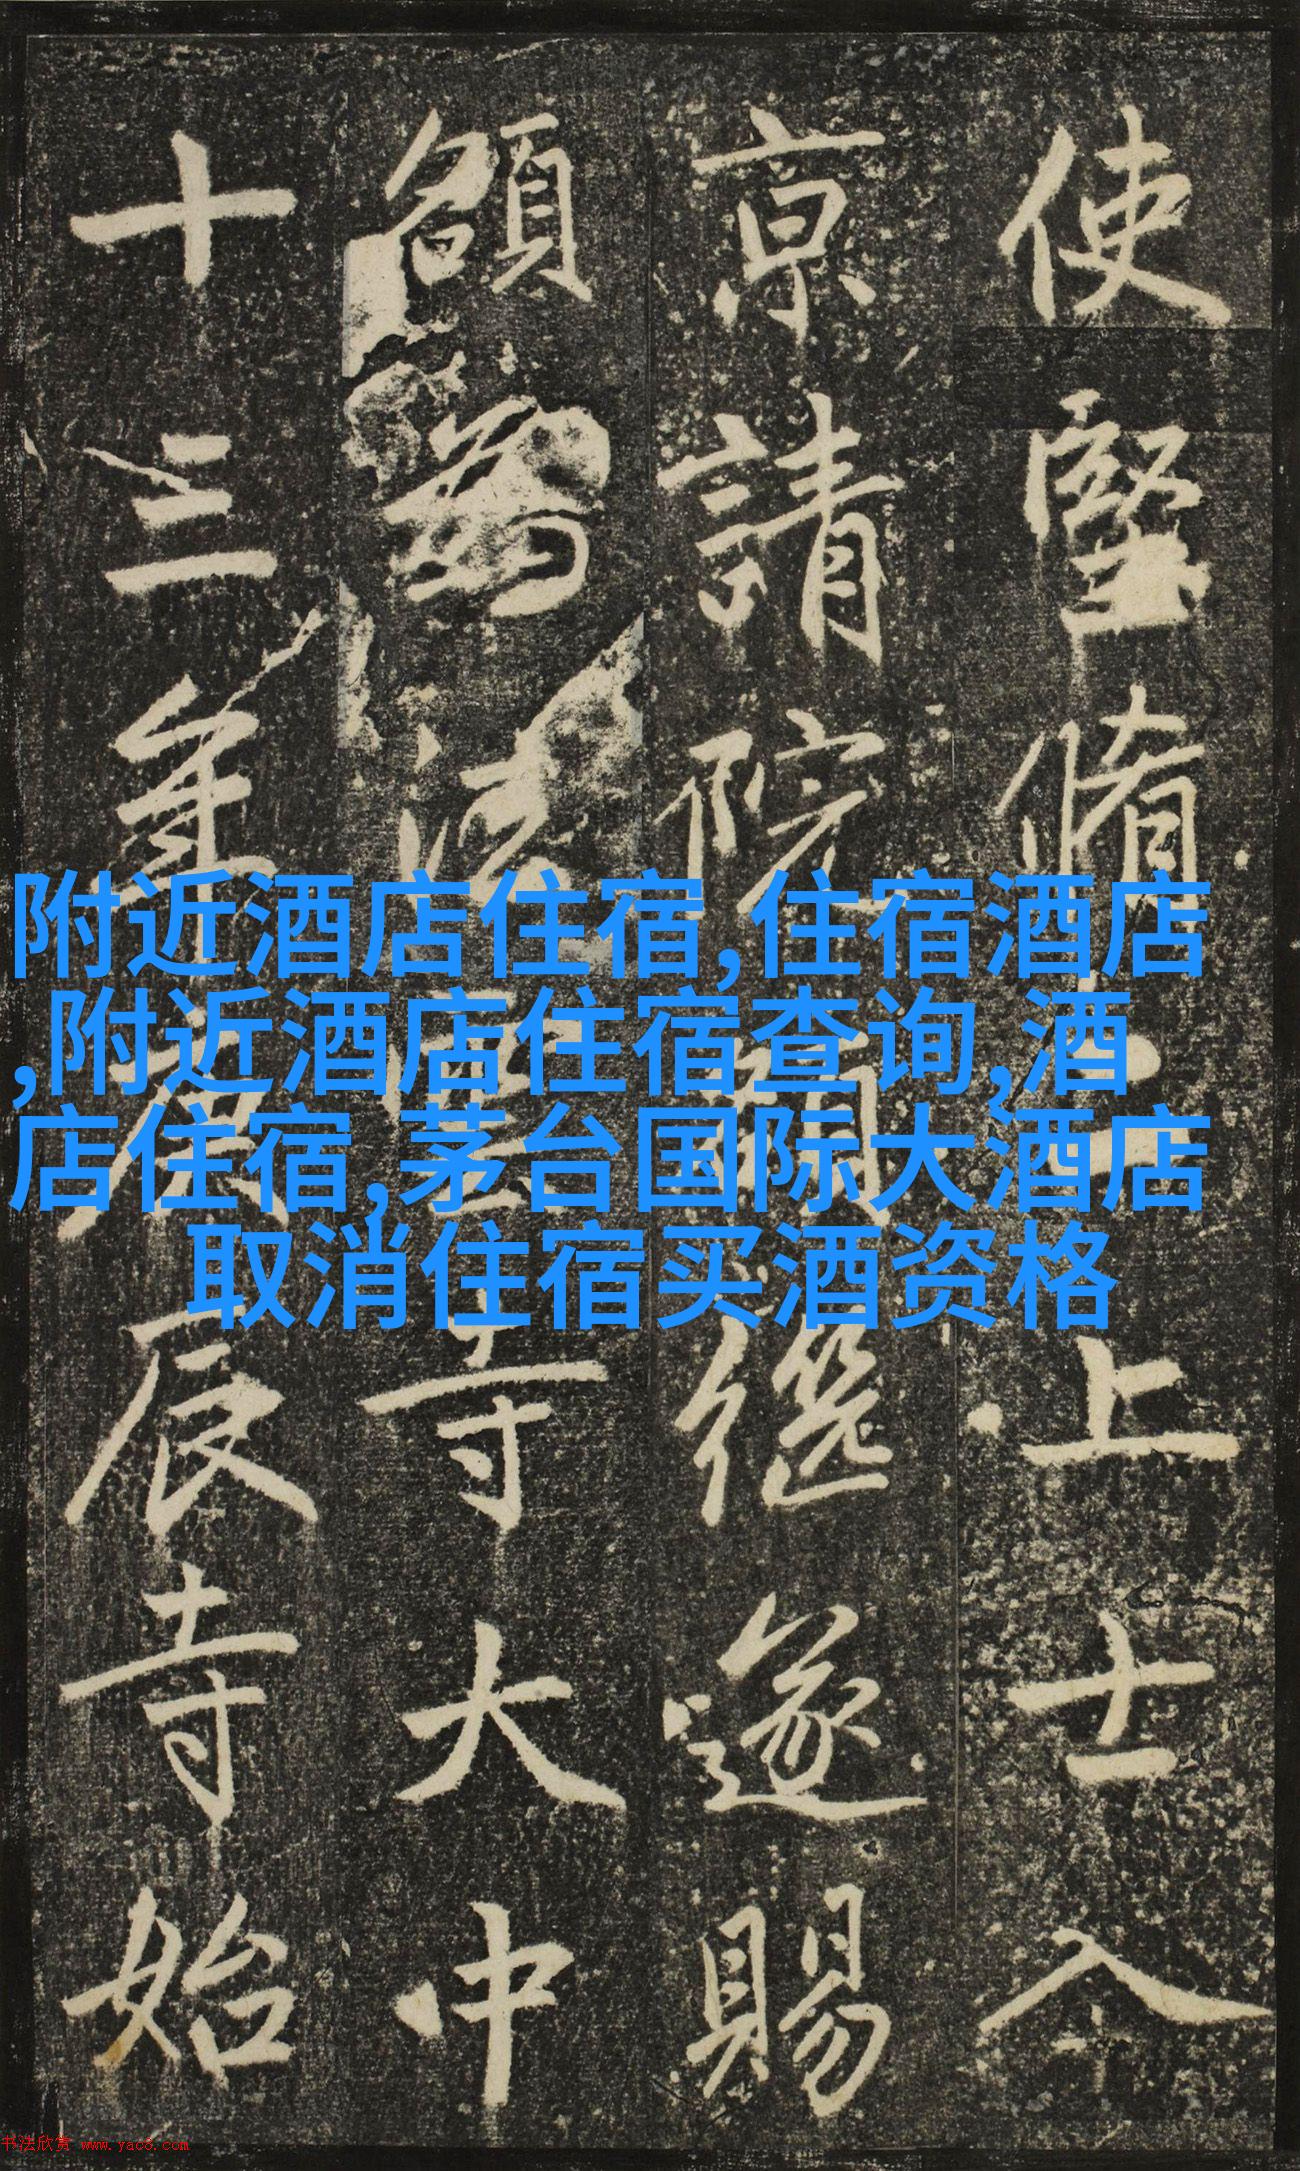 使堅脩上士入
京請院繼遂賜
額為法寺大中
十三年庚辰寺始
附近酒店住宿,住宿酒店
,附近酒店住宿查询,酒
店住宿,茅台国际大酒店
取消住宿买酒资格
书法欣赏 www.yac8.com